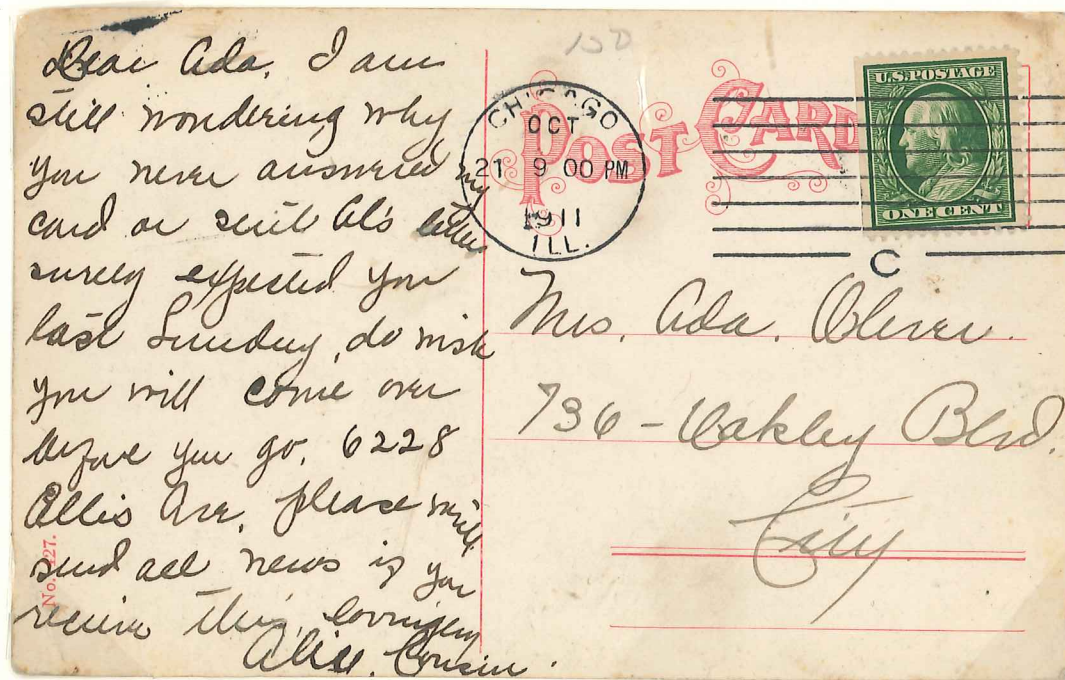 Dear Ada, I am
still wondering why
you never answered my
card or sent Al's letter
surely expected you
last Sunday, do wish
you will come over
before you go, 6228
Ellis Ave, please
send all news if you
receive this, lovingly
Cousin.
No. 227.
150
POST CARD
CHICAGO
OCT
21 9 00 PM
1911
ILL.
C
U.S. POSTAGE
ONE CENT
Mrs, Ada, Oliver.
736 - Oakley Blvd.
City